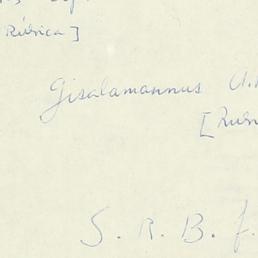 Rúbrica]
Gisalamannus
[Rubr
S. R. B. f.